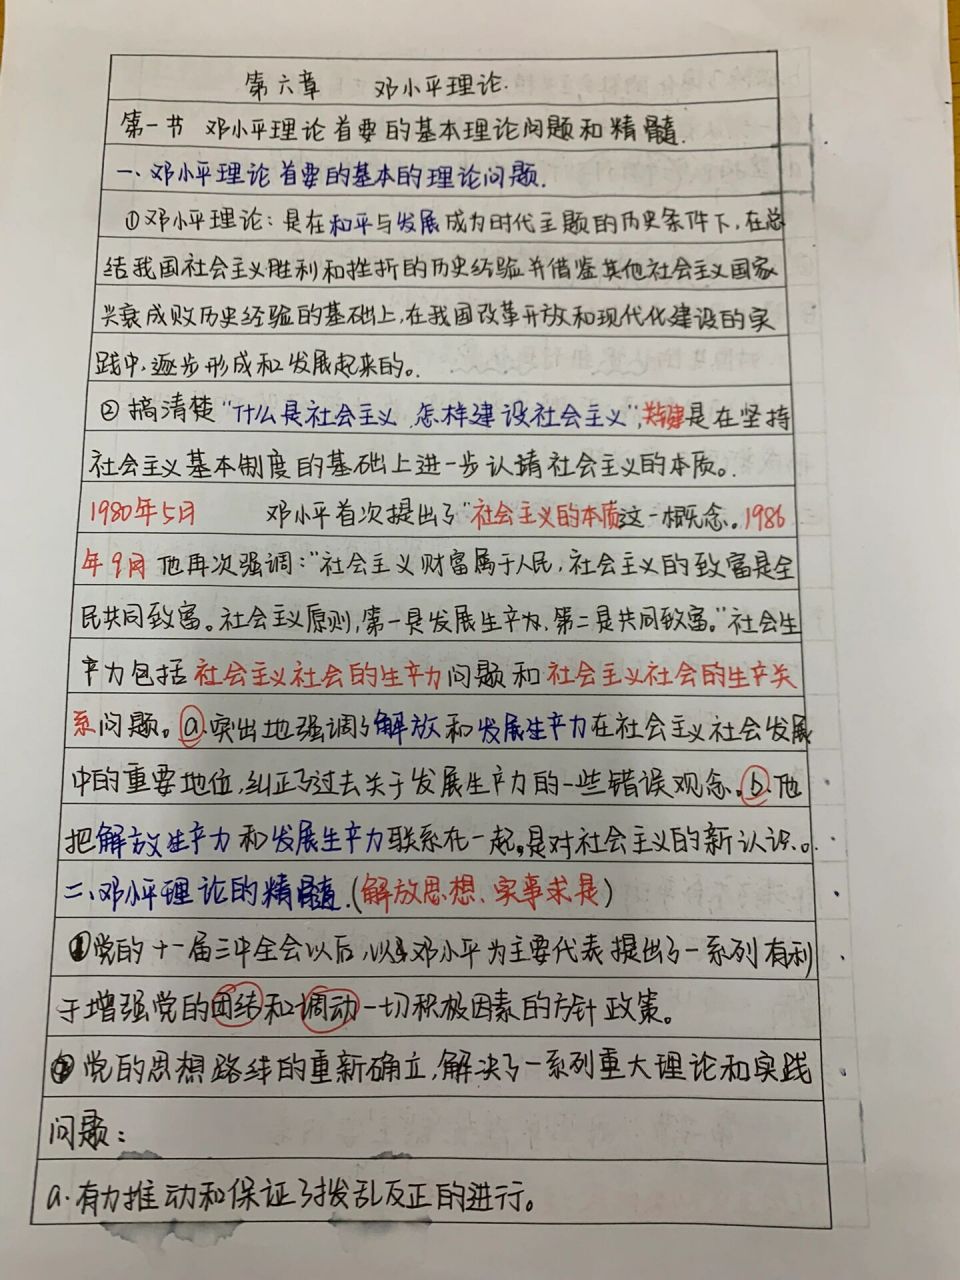 第六章 邓小平理论.
第一节 邓小平理论首要的基本理论问题和精髓.
一、邓小平理论首要的基本的理论问题.
①邓小平理论：是在和平与发展成为时代主题的历史条件下，在总
结我国社会主义胜利和挫折的历史经验并借鉴其他社会主义国家
兴衰成败历史经验的基础上，在我国改革开放和现代化建设的实
践中，逐步形成和发展起来的。
②搞清楚“什么是社会主义、怎样建设社会主义”，关键是在坚持
社会主义基本制度的基础上进一步认清社会主义的本质。
1980年5月 邓小平首次提出了“社会主义的本质”这一概念。1986
年9月他再次强调：“社会主义财富属于人民，社会主义的致富是全
民共同致富。社会主义原则，第一是发展生产力，第二是共同致富。”社会生
产力包括社会主义社会的生产力问题和社会主义社会的生产关
系问题。ⓐ.突出地强调了解放和发展生产力在社会主义社会发展
中的重要地位，纠正了过去关于发展生产力的一些错误观念。ⓑ.他
把解放生产力和发展生产力联系在一起，是对社会主义的新认识。
二、邓小平理论的精髓.（解放思想、实事求是）
①党的十一届三中全会以后，以邓小平为主要代表提出了一系列有利
于增强党的团结和调动一切积极因素的方针政策。
②党的思想路线的重新确立，解决了一系列重大理论和实践
问题：
a.有力推动和保证了拨乱反正的进行。